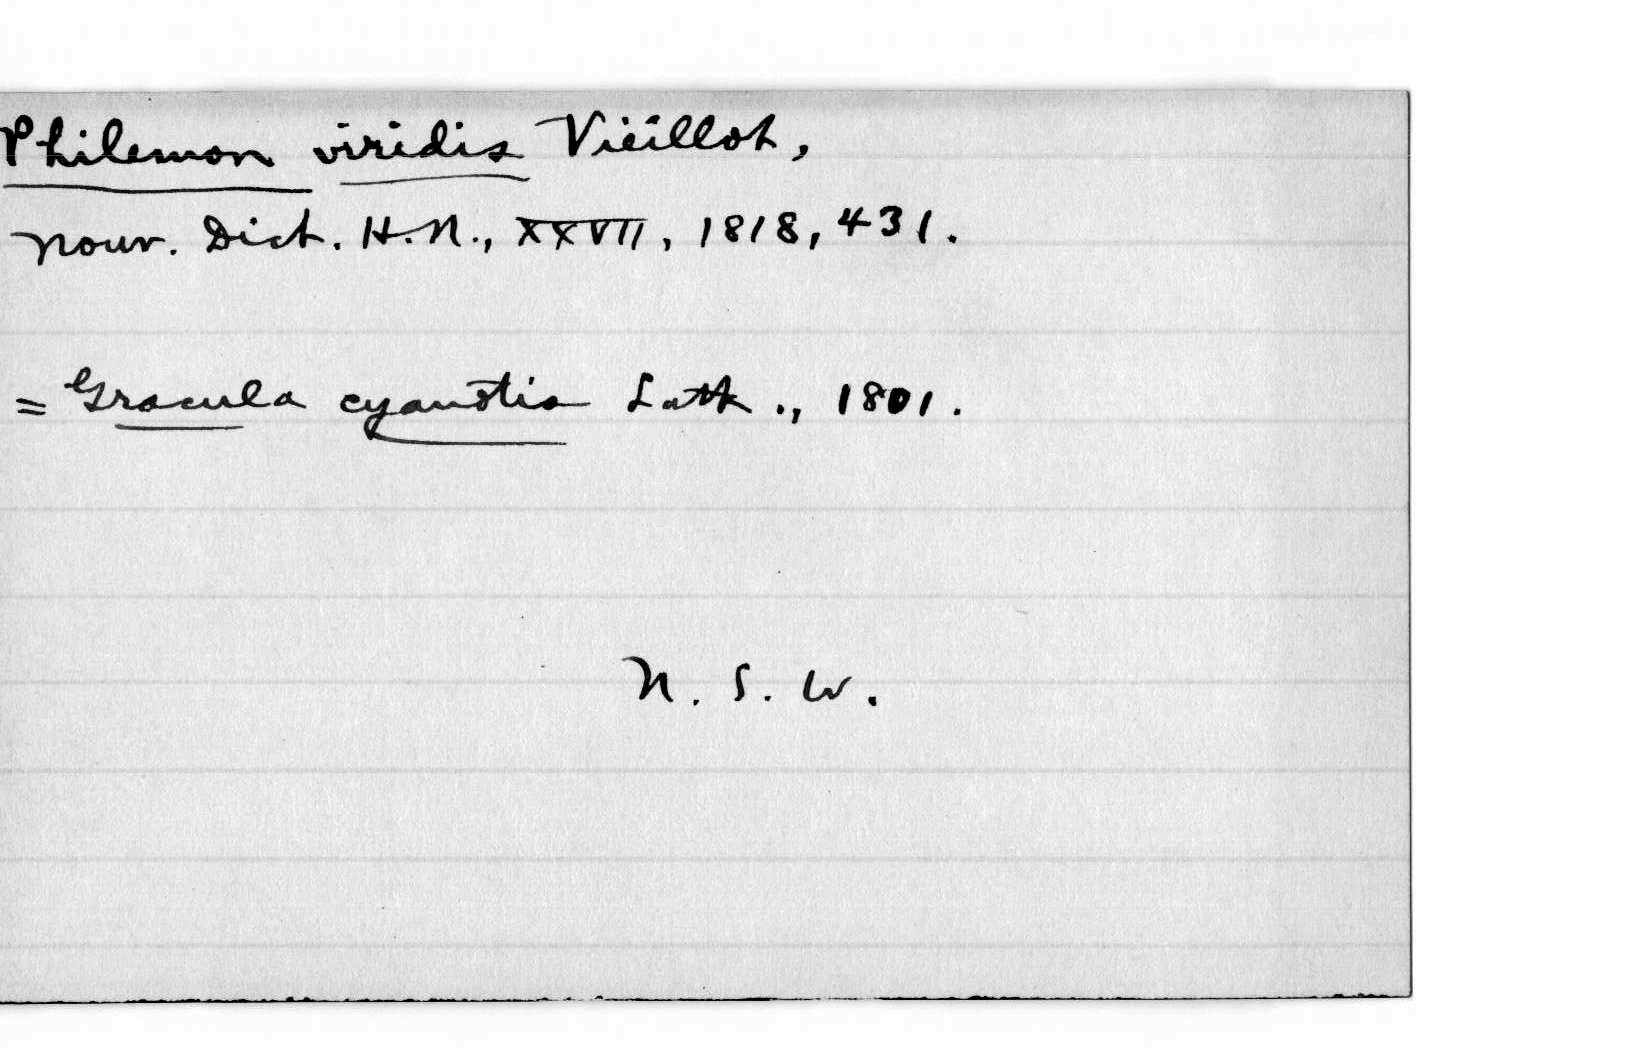 Philemon viridis Vieillot,
Nouv. Dict. H.N., XXVII, 1818, 431.
= Gracula cyanotis Lath., 1801.
N. S. W.